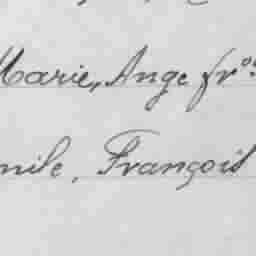 Marie, Ange fr.ois
mile, François